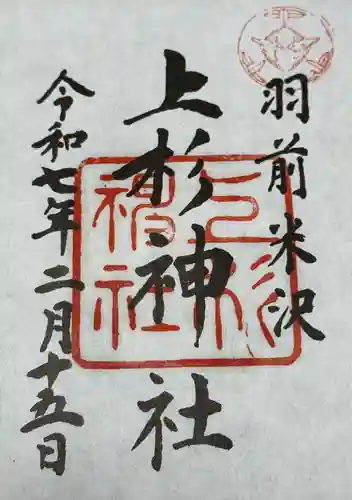 羽前米沢
上杉神社
令和七年二月十五日
上杉神社